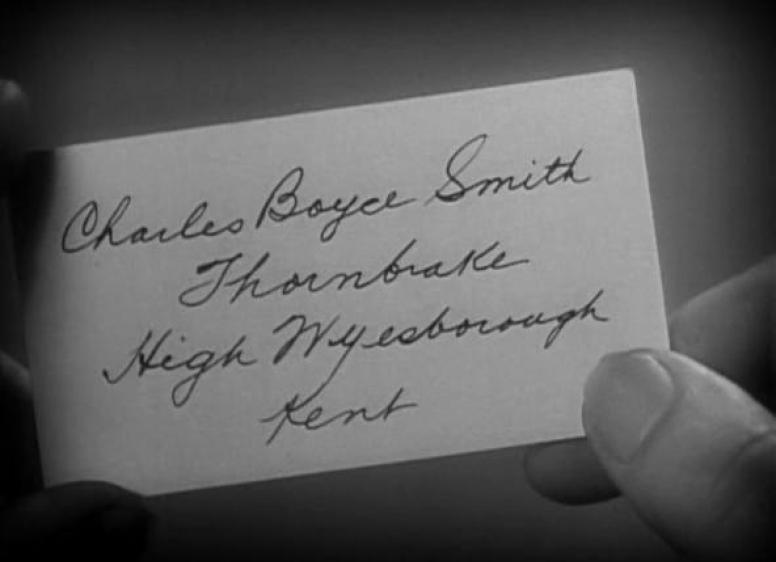 Charles Boyce Smith
Thornbrake
High Wyesborough
Kent